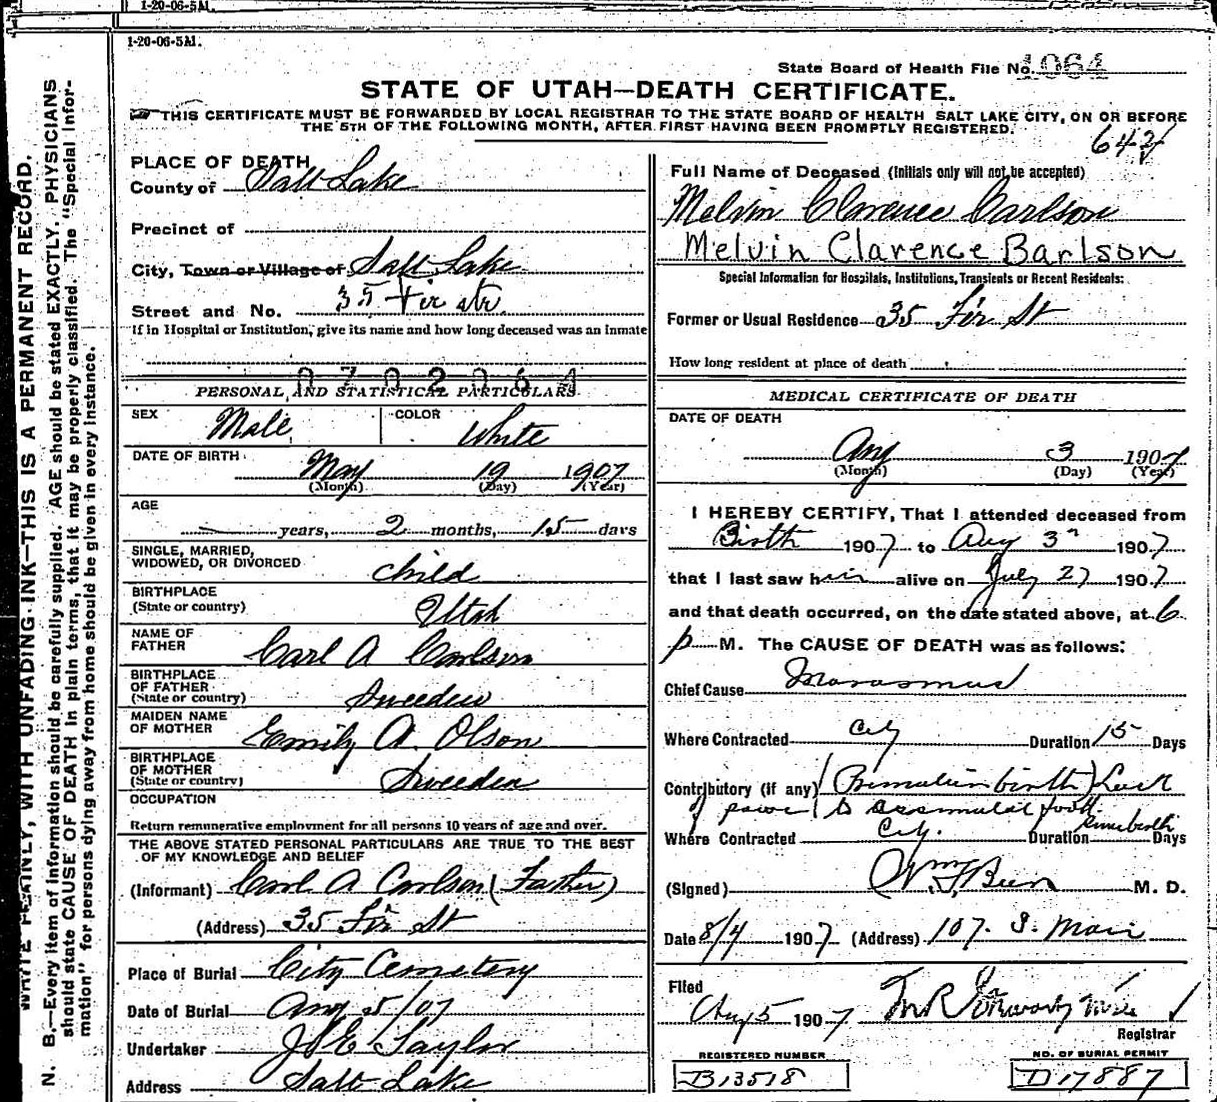 1-20-06-5M.
1-20-06-5M.
State Board of Health File No. 1064
STATE OF UTAH—DEATH CERTIFICATE.
THIS CERTIFICATE MUST BE FORWARDED BY LOCAL REGISTRAR TO THE STATE BOARD OF HEALTH SALT LAKE CITY, ON OR BEFORE
THE 5TH OF THE FOLLOWING MONTH, AFTER FIRST HAVING BEEN PROMPTLY REGISTERED.
WRITE PLAINLY, WITH UNFADING INK—THIS IS A PERMANENT RECORD.
N. B.—Every item of information should be carefully supplied. AGE should be stated EXACTLY. PHYSICIANS
should state CAUSE OF DEATH in plain terms, that it may be properly classified. The "Special Infor-
mation" for persons dying away from home should be given in every instance.
PLACE OF DEATH
County of Salt Lake
Precinct of
City, Town or Village of Salt Lake
Street and No. 35 Fir str.
If in Hospital or Institution, give its name and how long deceased was an Inmate
0702064
PERSONAL AND STATISTICAL PARTICULARS
SEX Male COLOR White
DATE OF BIRTH May 19 1907
(Month) (Day) (Year)
AGE
years, 2 months, 15 days
SINGLE, MARRIED,
WIDOWED, OR DIVORCED child
BIRTHPLACE
(State or country) Utah
NAME OF
FATHER Carl A Carlson
BIRTHPLACE
OF FATHER
(State or country) Sweeden
MAIDEN NAME
OF MOTHER Emily A. Olson
BIRTHPLACE
OF MOTHER
(State or country) Sweeden
OCCUPATION
Return remunerative employment for all persons 10 years of age and over.
THE ABOVE STATED PERSONAL PARTICULARS ARE TRUE TO THE BEST
OF MY KNOWLEDGE AND BELIEF
(Informant) Carl A Carlson (Father)
(Address) 35 Fir St
Place of Burial City Cemetery
Date of Burial Aug 5/07
Undertaker Taylor
Address Salt Lake
Full Name of Deceased (Initials only will not be accepted)
Melvin Clarence Carlson
Melvin Clarence Barlson
Special Information for Hospitals, Institutions, Transients or Recent Residents:
Former or Usual Residence 35 Fir St
How long resident at place of death
MEDICAL CERTIFICATE OF DEATH
DATE OF DEATH
Aug 3 1907
(Month) (Day) (Year)
I HEREBY CERTIFY, That I attended deceased from
Birth 1907 to Aug 3 1907
that I last saw him alive on July 27 1907
and that death occurred, on the date stated above, at 6
p M. The CAUSE OF DEATH was as follows:
Chief Cause Marasmus
Where Contracted City Duration 15 Days
Contributory (if any) (birth) Lack
of power to food.
Where Contracted City. Duration Days
(Signed) M. D.
Date 8/4 1907 (Address) 107. S. Main
Filed
Aug 5 1907
Registrar
REGISTERED NUMBER
B13518
NO. OF BURIAL PERMIT
D17887